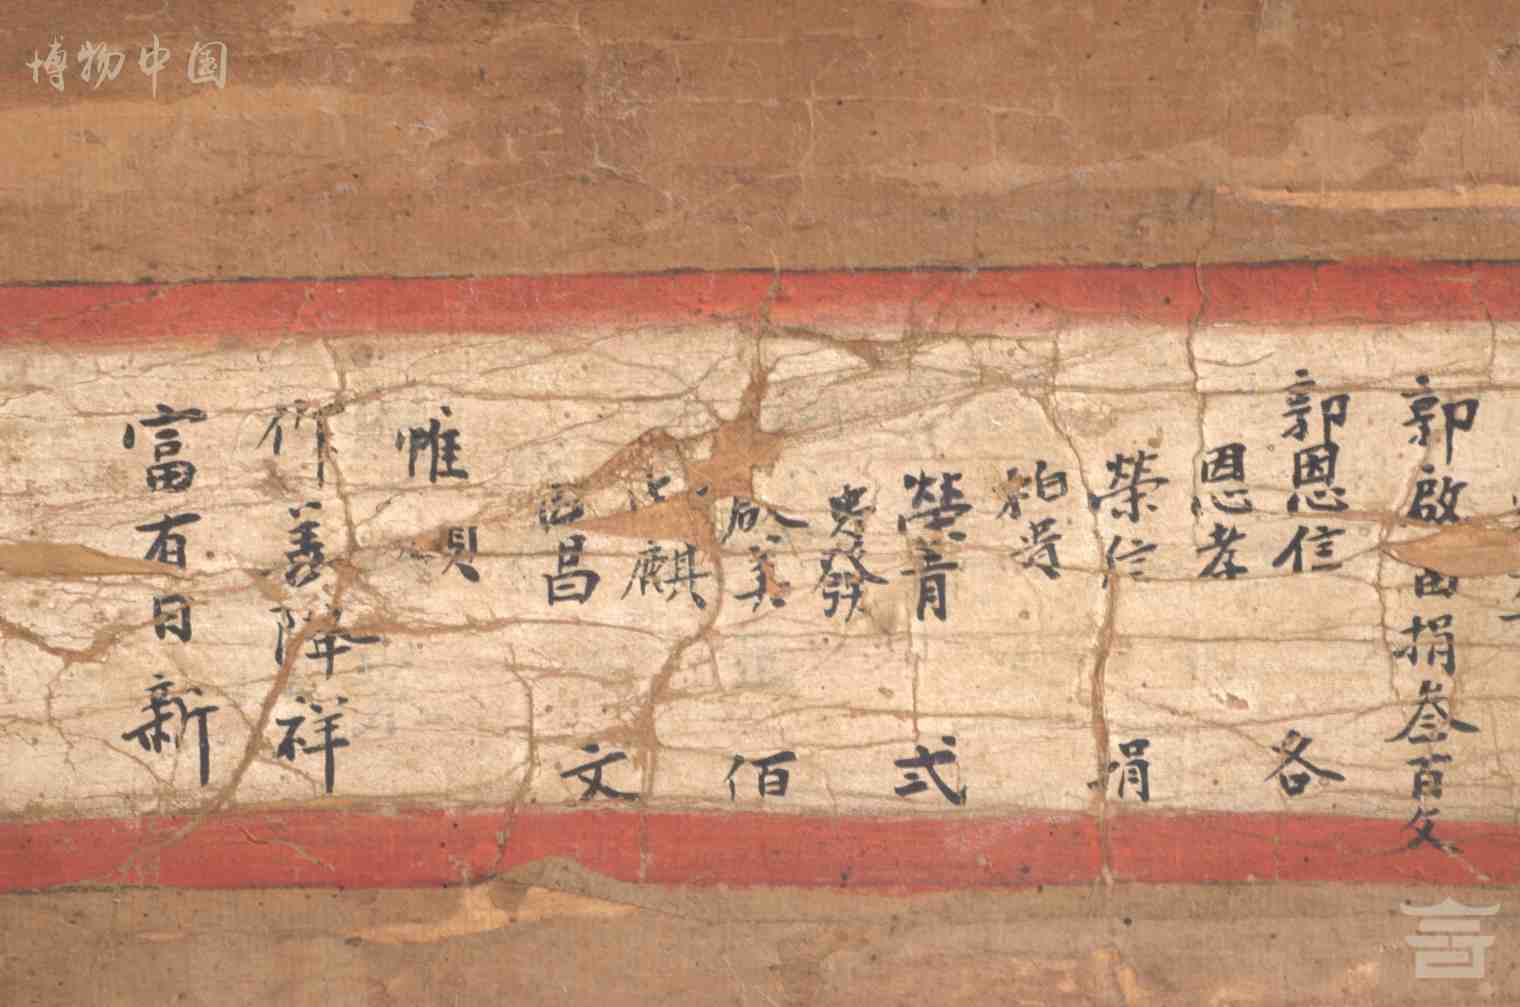 博物中国
郭啟 捐叁百文
郭恩信
恩孝
榮信
柏
榮青
發
啟美
麒
昌
各捐弍佰文
惟
作善降祥
富有日新